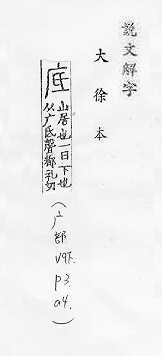 説文解字
大徐本
底
山居也一曰下也
从广氐聲都礼切
(广部
V9下.
p3.
a4.)